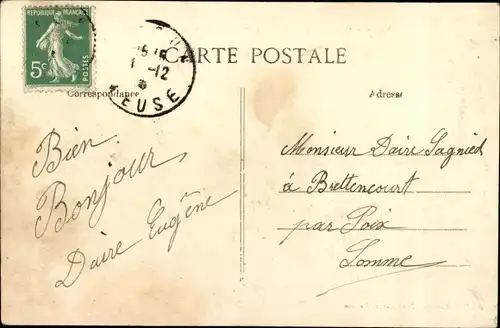 RÉPUBLIQUE FRANÇAISE
5c
POSTES
1 -12
MEUSE
CARTE POSTALE
Correspondance
Adresse
Bien
Bonjour
Daire Eugêne
Monsieur Daire Sagnied
à Brettencourt
par Poix
Somme